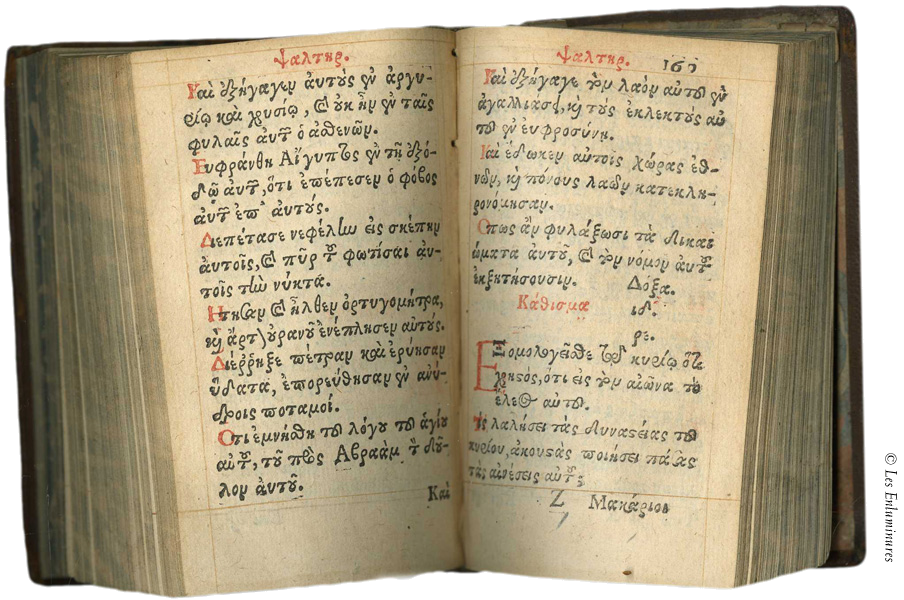 Ψαλτηρ.
Καὶ ἐξήγαγεν ἀυτοὺς ἐν ἀργυ-
ρίῳ καὶ χρυσίῳ, καὶ οὐκ ἦν ἐν ταῖς
φυλαῖς ἀυτῶν ὁ ἀσθενῶν.
Ευφράνθη Αἴγυπτος ἐν τῇ ἐξό-
δῳ ἀυτῶν, ὅτι ἐπέπεσεν ὁ φόβος
ἀυτῶν ἐπ' ἀυτούς.
Διεπέτασε νεφέλην εἰς σκέπην
ἀυτοῖς, καὶ πῦρ τοῦ φωτίσαι ἀυ-
τοῖς τὴν νύκτα.
Ητησαν καὶ ἦλθεν ὀρτυγομήτρα,
καὶ ἄρτον οὐρανοῦ ἐνέπλησεν αὐτούς.
Διέῤῥηξε πέτραν καὶ ἐρύησαν
ὕδατα, ἐπορεύθησαν ἐν ἀνύ-
δροις ποταμοί.
Οτι ἐμνήσθη τοῦ λόγου τοῦ ἁγίου
αὐτοῦ, τοῦ πρὸς Αβραὰμ τὸν δοῦ-
λον ἀυτοῦ.
Καὶ
Ψαλτηρ. 161
Καὶ ἐξήγαγε τὸν λαὸν αὐτοῦ ἐν
ἀγαλλιάσει, καὶ τοὺς ἐκλεκτοὺς αὐ
τοῦ ἐν ευφροσύνη.
Καὶ ἔδωκεν αὐτοῖς χώρας ἐθ-
νῶν, καὶ πόνους λαῶν κατεκλη-
ρονόμησαν.
Οπως ἂν φυλάξωσι τὰ δικαι
ώματα ἀυτοῦ, καὶ τὸν νόμον ἀυτοῦ
ἐκζητήσουσιν. Δόξα.
Κάθισμα ιδ'.
ρε.
Εξομολογεῖσθε τῷ κυρίῳ ὅτι
χρηστός, ὅτι εἰς τὸν αἰῶνα τὸ
ἔλεος αὐτοῦ.
Τίς λαλήσει τὰς δυναστείας τοῦ
κυρίου, ἀκουστὰς ποιήσει πάσας
τὰς αἰνέσεις αὐτοῦ;
Z Μακάριοι
© Les Enluminures